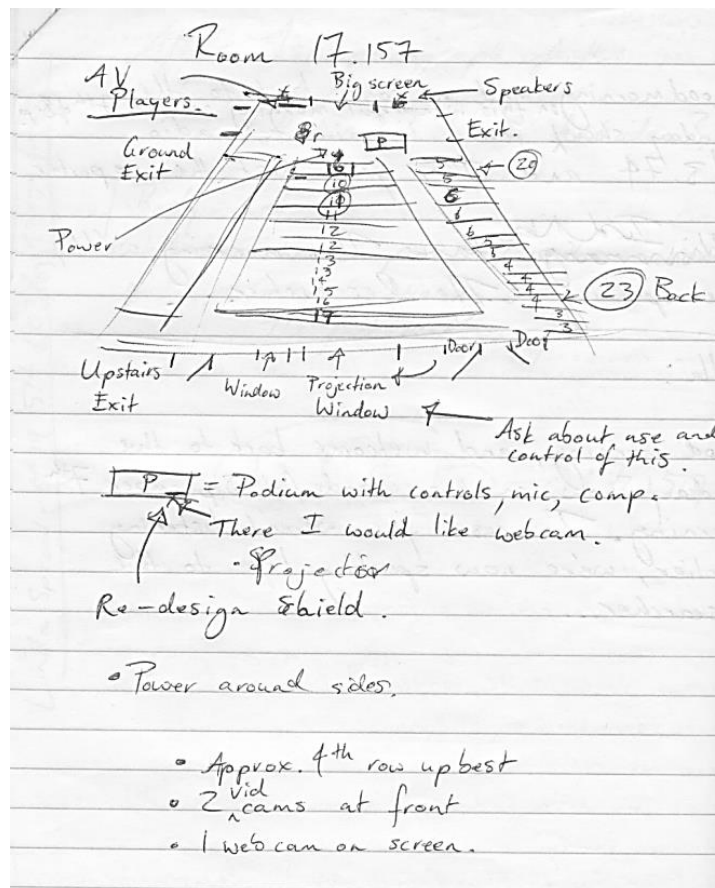 Room 17.157
AV
Players.
Big screen
Speakers
Exit.
Ground
Exit
P
20
Power
5
5
6
6
6
5
5
4
4
4
4
2
3
3
9
10
10
11
12
12
13
13
14
15
16
17
23 Back
Upstairs
Exit
Window
Projection
Window
Door
Door
Ask about use and
control of this.
P = Podium with controls, mic, comp.
There I would like webcam.
• Projector
Re-design Shield.
• Power around sides.
• Approx. 4th row up best
• 2 vid cams at front
• 1 webcam on screen.